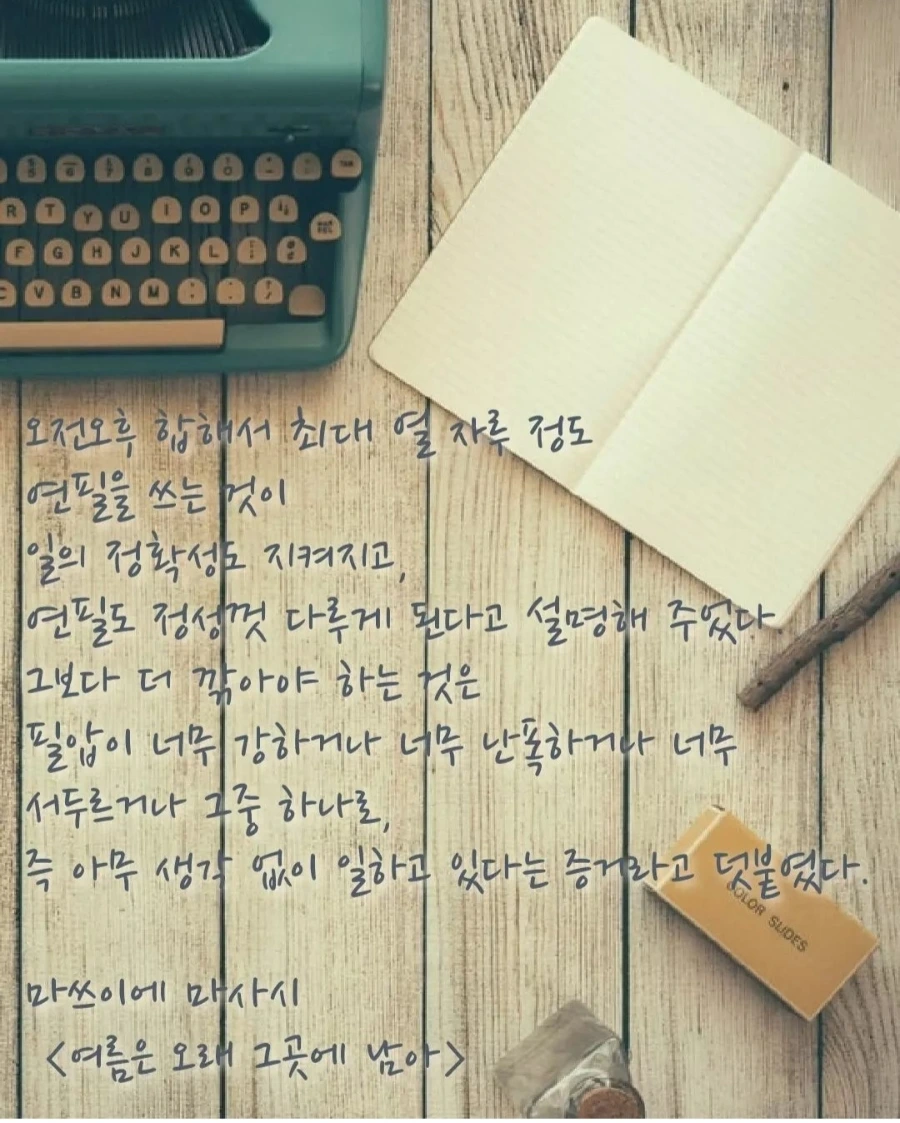 5 6 7 8 9 0
R T Y U I O P
F G H J K L
C V B N M
오전오후 합해서 최대 열 자루 정도
연필을 쓰는 것이
일의 정확성도 지켜지고,
연필도 정성껏 다루게 된다고 설명해 주었다
그보다 더 깎아야 하는 것은
필압이 너무 강하거나 너무 난폭하거나 너무
서두르거나 그중 하나로,
즉 아무 생각 없이 일하고 있다는 증거라고 덧붙였다.
COLOR SLIDES
마쓰이에 마사시
<여름은 오래 그곳에 남아>